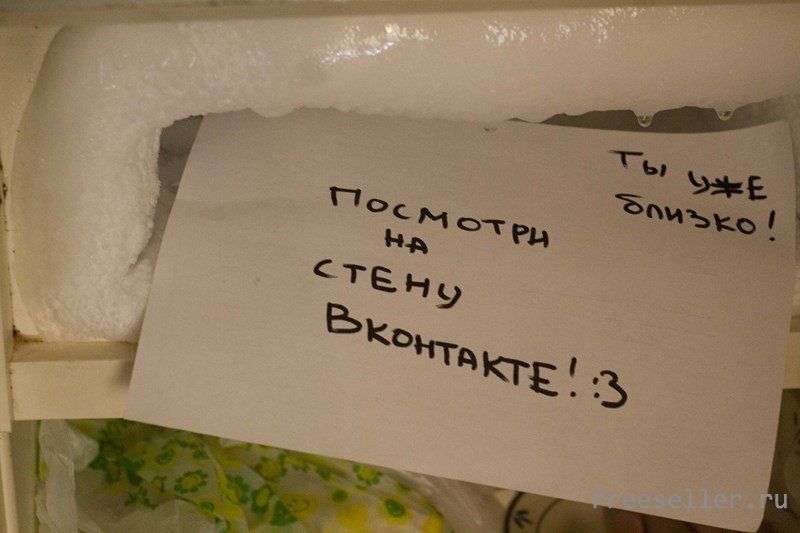 Ты уже
близко!
Посмотри
на
стену
Вконтакте! :3
Freeseller.ru